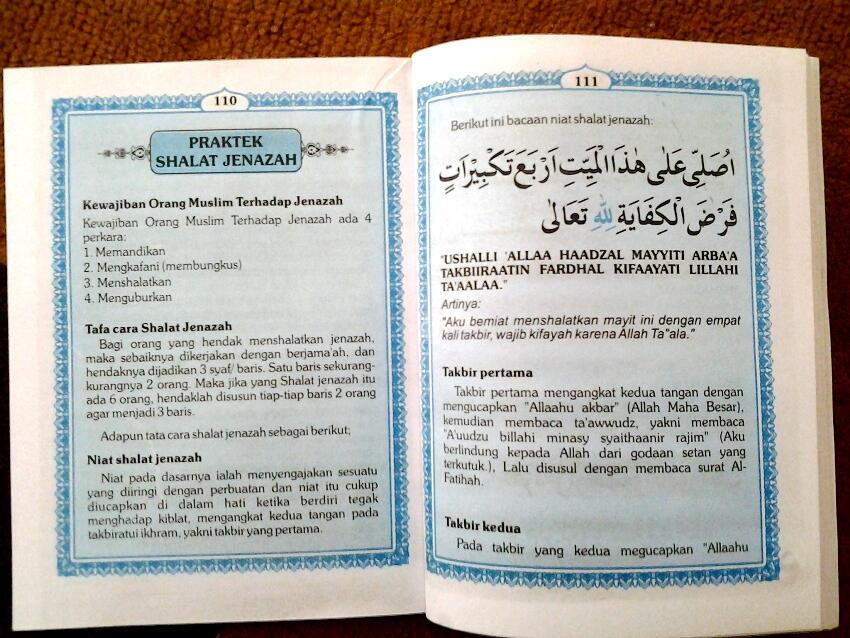 110
PRAKTEK
SHALAT JENAZAH
Kewajiban Orang Muslim Terhadap Jenazah
Kewajiban Orang Muslim Terhadap Jenazah ada 4
perkara:
1. Memandikan
2. Mengkafani (membungkus)
3. Menshalatkan
4. Menguburkan
Tafa cara Shalat Jenazah
Bagi orang yang hendak menshalatkan jenazah,
maka sebaiknya dikerjakan dengan berjama'ah, dan
hendaknya dijadikan 3 syaf/ baris. Satu baris sekurang-
kurangnya 2 orang. Maka jika yang Shalat jenazah itu
ada 6 orang, hendaklah disusun tiap-tiap baris 2 orang
agar menjadi 3 baris.
Adapun tata cara shalat jenazah sebagai berikut;
Niat shalat jenazah
Niat pada dasarnya ialah menyengajakan sesuatu
yang diiringi dengan perbuatan dan niat itu cukup
diucapkan di dalam hati ketika berdiri tegak
menghadap kiblat, mengangkat kedua tangan pada
takbiratui ikhram, yakni takbir yang pertama.
111
Berikut ini bacaan niat shalat jenazah:
اُصَلِّى عَلٰى هٰذَا الْمَيِّتِ اَرْبَعَ تَكْبِيْرَاتٍ
فَرْضَ الْكِفَايَةِ لِلّٰهِ تَعَالٰى
"USHALLI 'ALLAA HAADZAL MAYYITI ARBA'A
TAKBIIRAATIN FARDHAL KIFAAYATI LILLAHI
TA'AALAA."
Artinya:
"Aku berniat menshalatkan mayit ini dengan empat
kali takbir, wajib kifayah karena Allah Ta"ala."
Takbir pertama
Takbir pertama mengangkat kedua tangan dengan
mengucapkan "Allaahu akbar" (Allah Maha Besar),
kemudian membaca ta'awwudz, yakni membaca
"A'uudzu billahi minasy syaithaanir rajim" (Aku
berlindung kepada Allah dari godaan setan yang
terkutuk.), Lalu disusul dengan membaca surat Al-
Fatihah.
Takbir kedua
Pada takbir yang kedua megucapkan "Allaahu